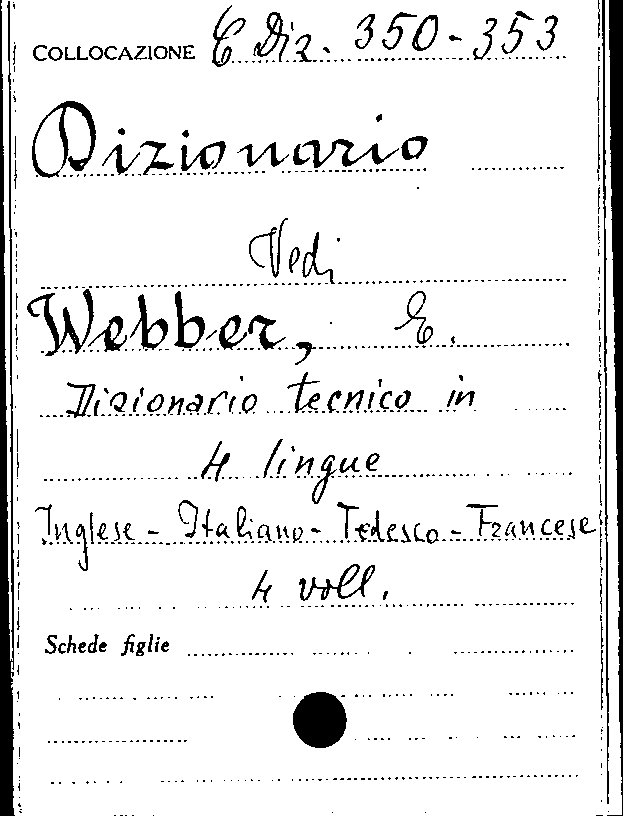 COLLOCAZIONE C Diz. 350-353
Dizionario
Vedi
Webber, E.
Dizionario tecnico in
4 lingue
Inglese - Italiano - Tedesco - Francese
4 voll.
Schede figlie